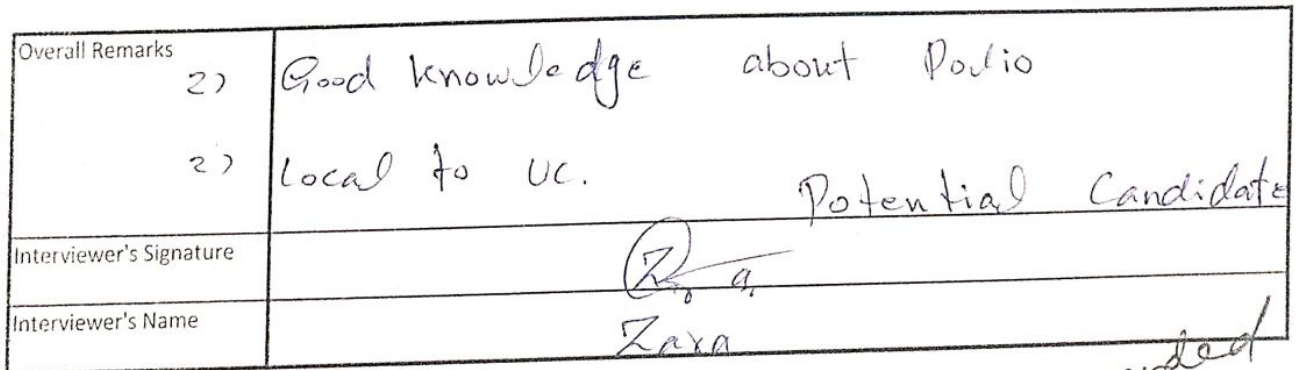 Overall Remarks
2) Good knowledge about Polio
2) Local to UC.
Potential Candidate
Interviewer's Signature
Interviewer's Name Zara